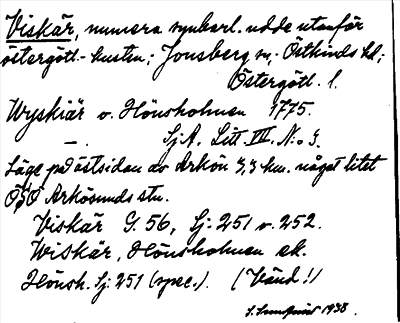 Viskär, numera synbarl. udde utanför
östergötl. kusten; Jonsberg sn, Östkinds hd;
Östergötl. l.
Wyskiär v. Hönsholmen 1775.
—. SjA. Litt VII. No 3.
Läge på östsidan av Arkön 3,3 km. något litet
OSO Arkösunds stn.
Viskär G. 56, Sj. 251 o. 252.
Wiskär, Hönsholmen ek.
Hönsh. Sj. 251 (spec.). (Vänd!)
S. Sundqvist 1938.